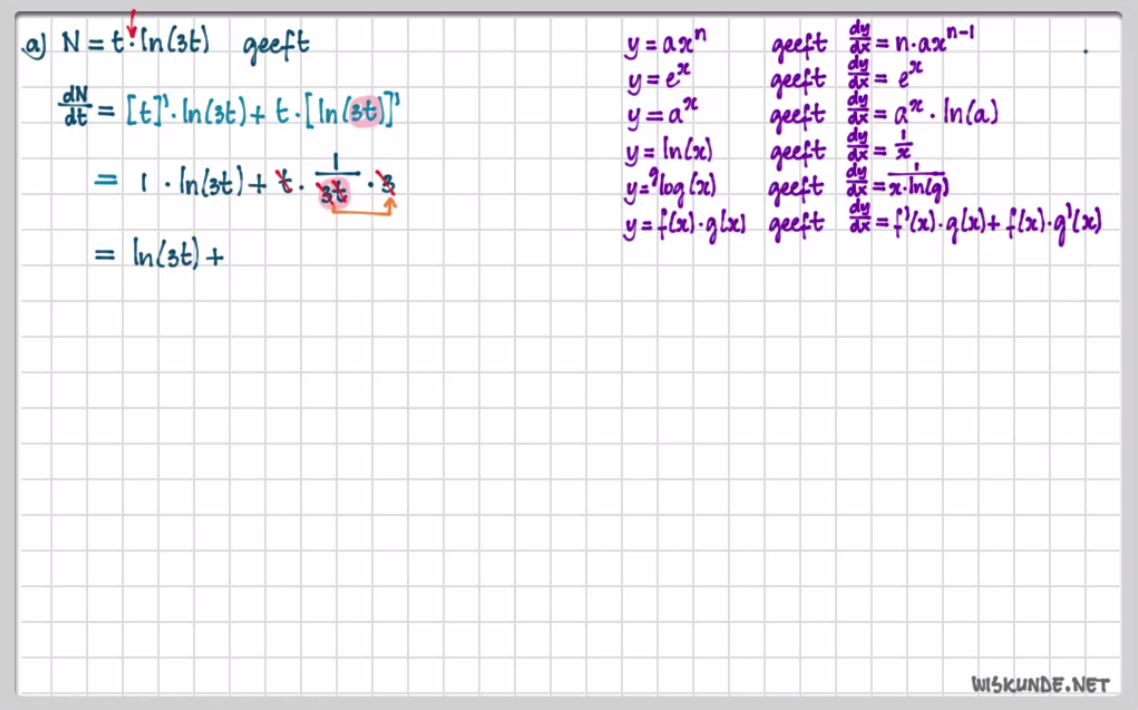 a) N = t · ln(3t) geeft
dN/dt = [t]' · ln(3t) + t · [ln(3t)]'
= 1 · ln(3t) + t · 1/3t · 3
= ln(3t) +
y = axⁿ geeft dy/dx = n · axⁿ⁻¹
y = eˣ geeft dy/dx = eˣ
y = aˣ geeft dy/dx = aˣ · ln(a)
y = ln(x) geeft dy/dx = 1/x
y = ᵍlog(x) geeft dy/dx = 1/x·ln(g)
y = f(x) · g(x) geeft dy/dx = f'(x) · g(x) + f(x) · g'(x)
WISKUNDE.NET